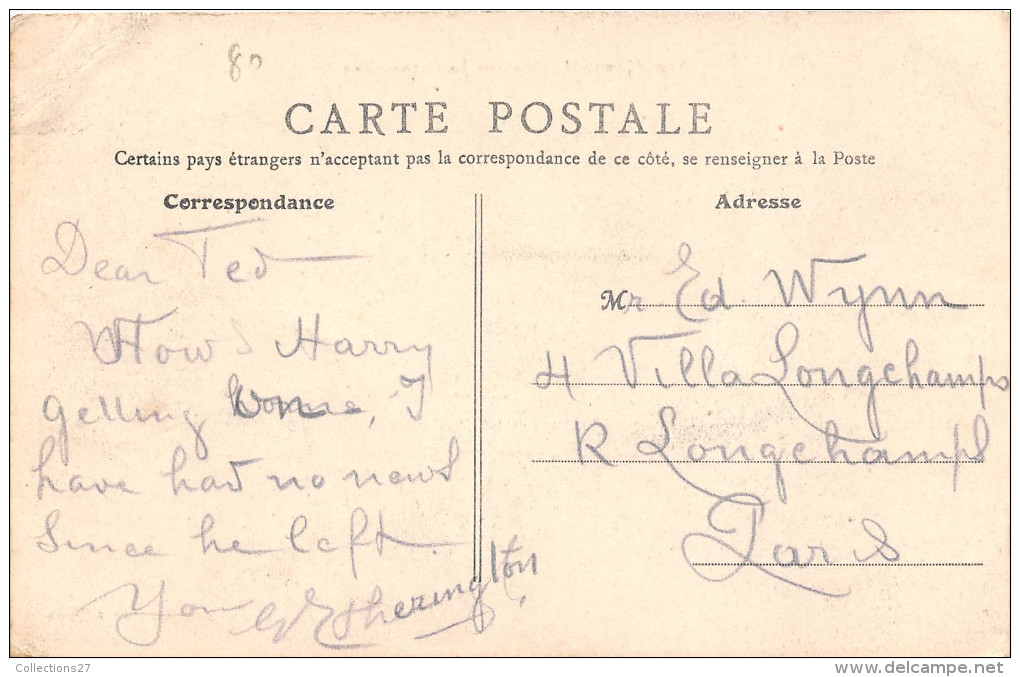 80
CARTE POSTALE
Certains pays étrangers n'acceptant pas la correspondance de ce côté, se renseigner à la Poste
Correspondance
Dear Ted
How's Harry
getting
have had no news
since he left.
G Etherington
Adresse
Mr Ed. Wynn
4 Villa Longchamps
R Longchamps
Paris
Collections27
http://www.delcampe.net